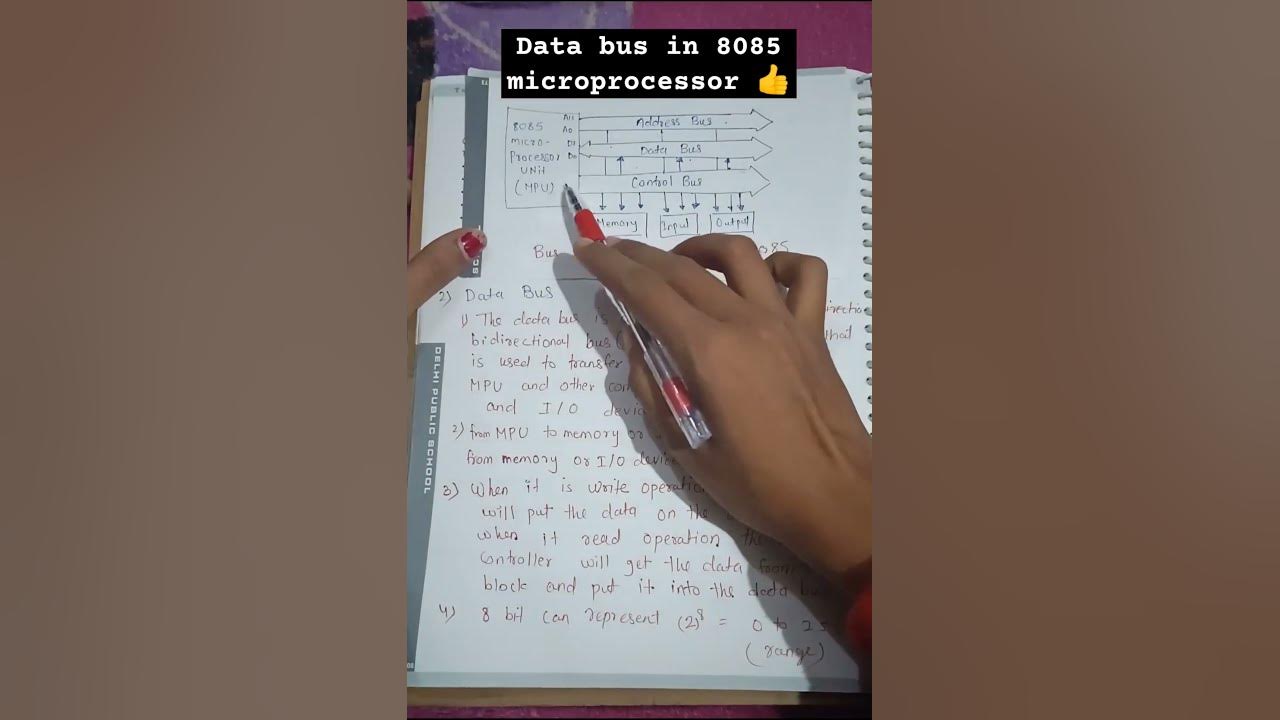 Data bus in 8085
microprocessor 👍
8085
micro-
Processor
UNit
(MPU)
A15
A0
D7
D0
Address Bus
Data Bus
Control Bus
Memory
Input
Output
Bus 8085
2) Data Bus
1) The data bus is
bidirectional bus( that
is used to transfer
MPU and other
and I/O
2) from MPU to memory or
from memory or I/O device
3) When it is write operation
will put the data on the
when it read operation the
Controller will get the data from
block and put it into the data
4) 8 bit can represent (2)⁸ = 0 to
(range)
DELHI PUBLIC SCHOOL